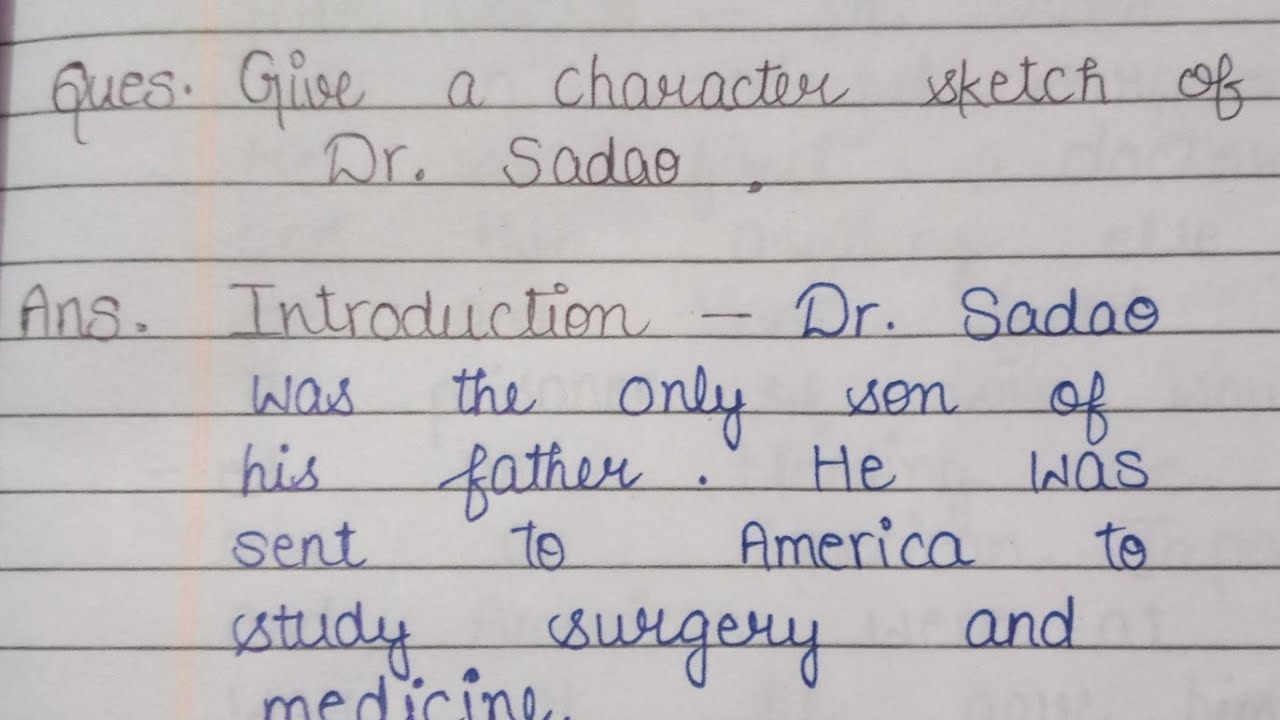 Ques. Give a character sketch of
Dr. Sadao .
Ans. Introduction - Dr. Sadao
was the only son of
his father . He was
sent to America to
study surgery and
medicine.